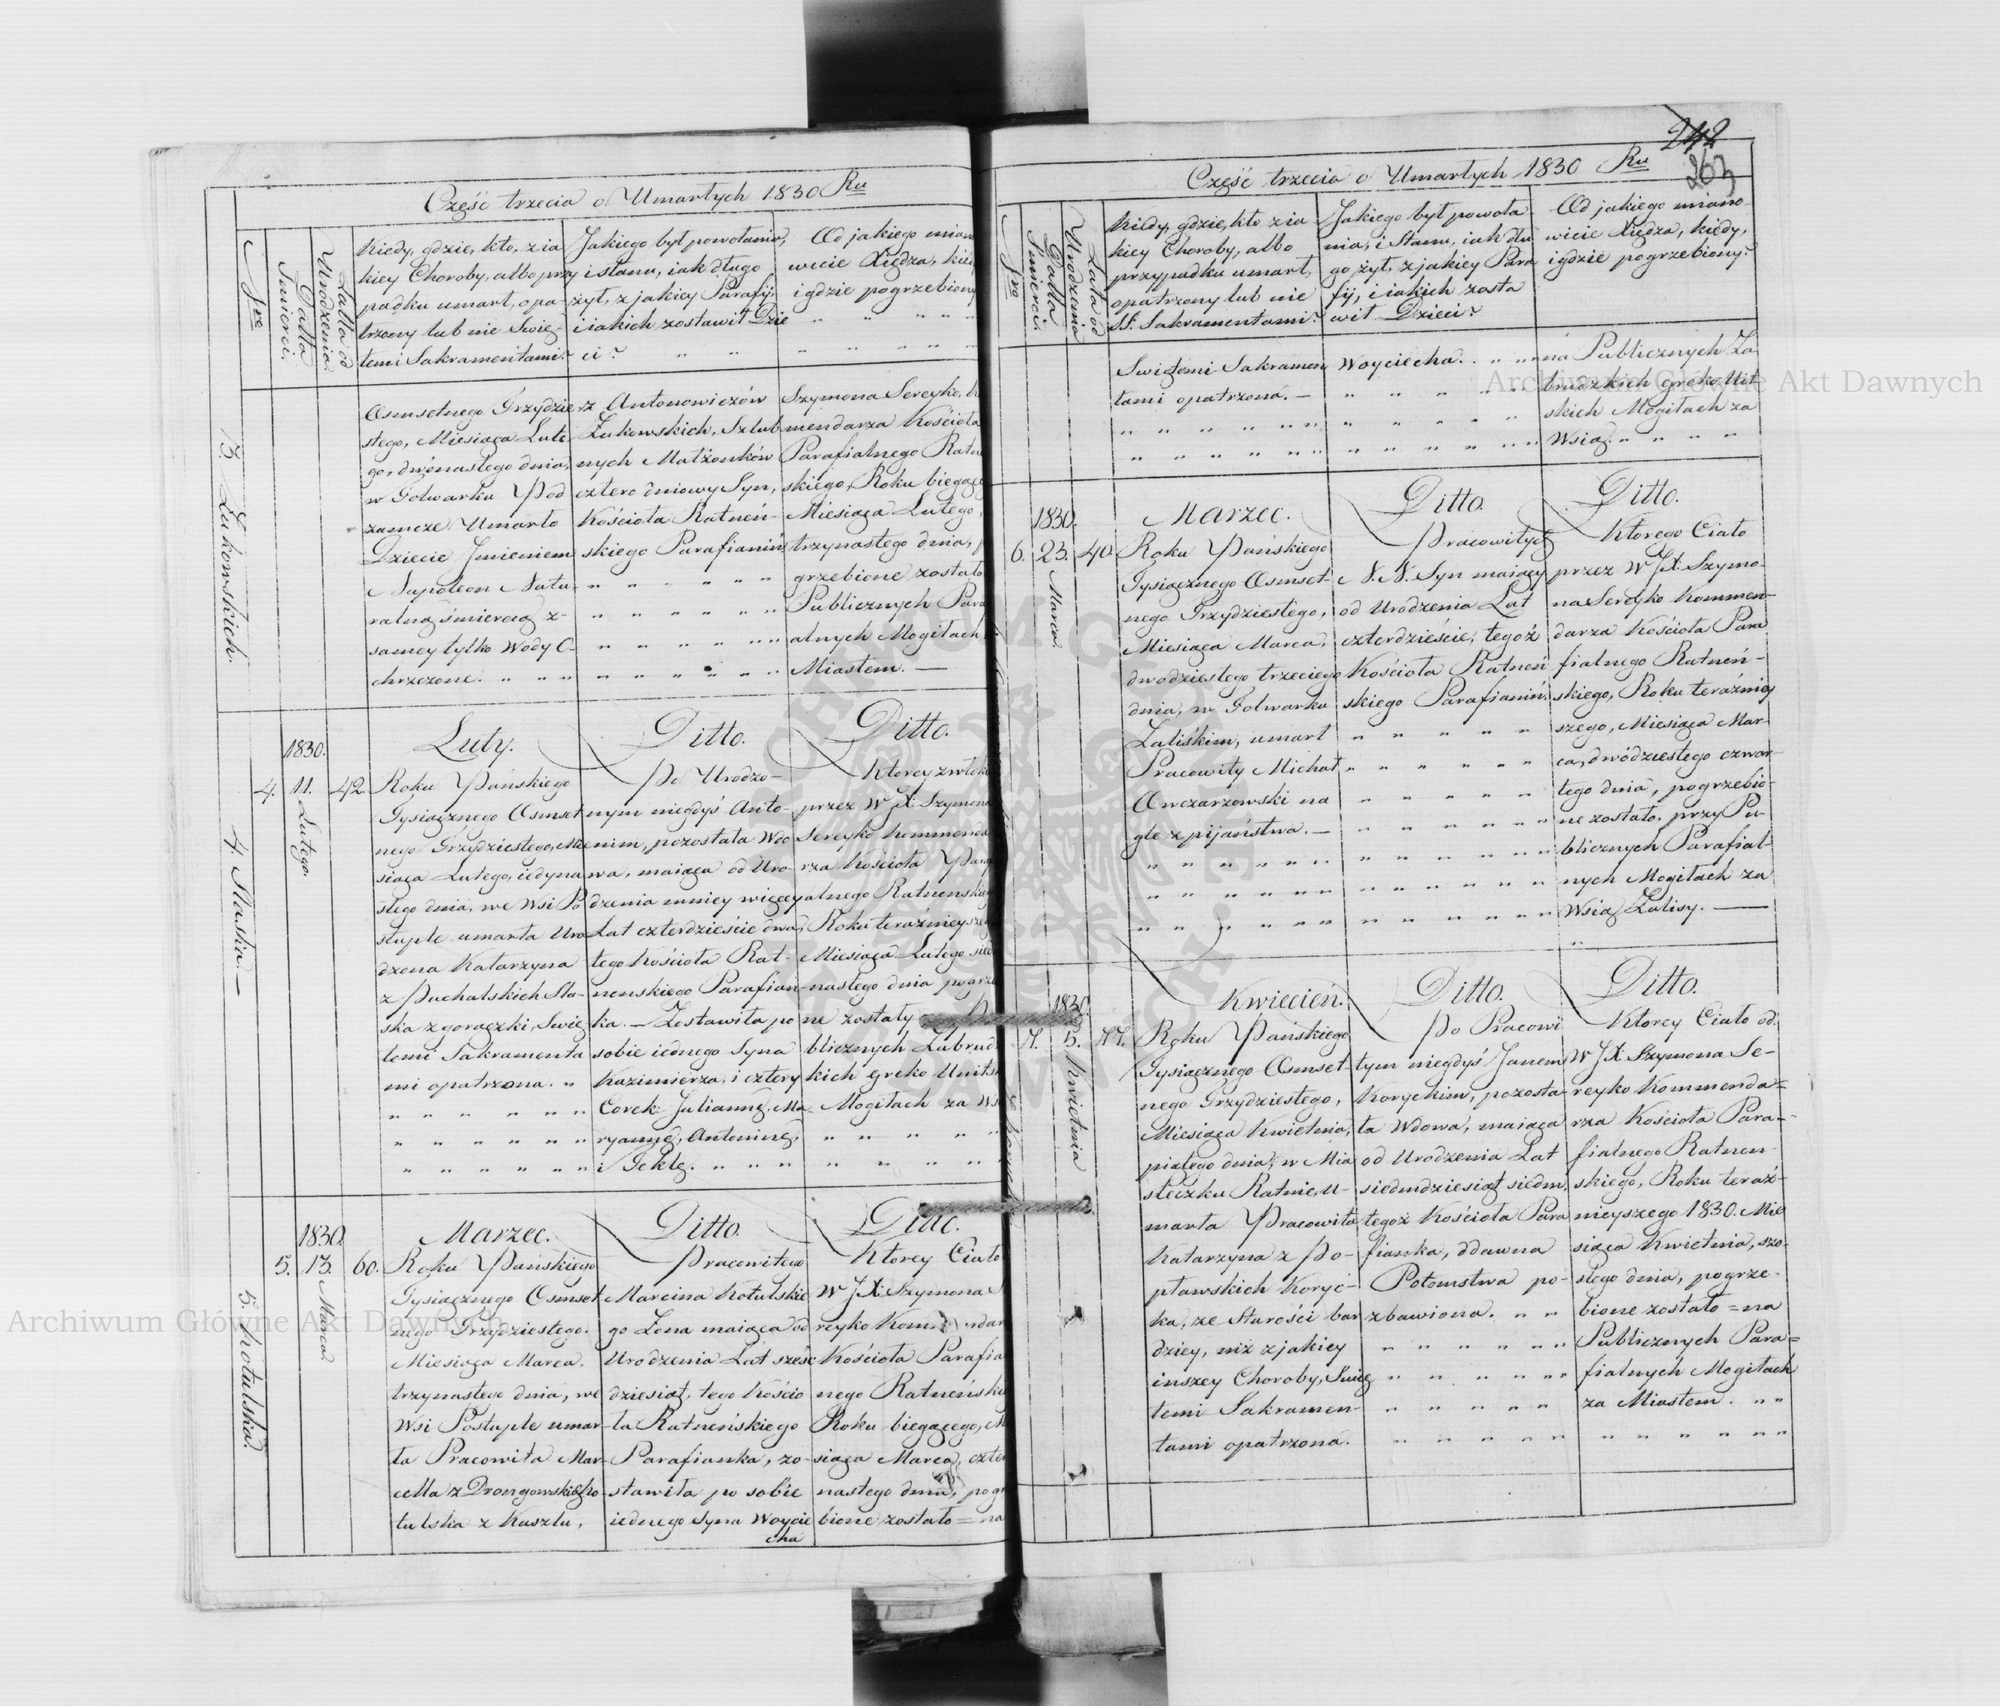 Część trzecia o Umarłych 1830 Ru
Nro
Datta Smierci.
Latta od Urodzenia.
Kiedy, gdzie, kto, z ia
kiey Choroby, albo przy
padku umarł, opa-
trzony lub nie Swię-
temi Sakramentami?
Jakiego był powołania,
i stanu, iak długo
żył, z jakiey Parafij,
i iakich zostawił Dzie
ci?
Od jakiego mian
wicie Xiędza, kie
i gdzie pogrzebiony
3. Żukowskich.
Osmsetnego Trzydzie
stego, Miesiąca Lute
go, dwónastego dnia,
w Folwarku Pod
zamcze Umarło
Dziecie Jmieniem
Napoleon Natu-
ralną śmiercią z-
samey tylko Wody O-
chrzczone.
rz Antonowiczów
Żukowskich, Szlub
nych Małżonków
cztero dniowy Syn,
Kościoła Ratneń-
skiego Parafianin
Szymona Sereyko, K
mendarza Kościoła
Parafialnego Ratn
skiego, Roku biegące
Miesiąca Lutego,
trzynastego dnia, p
grzebione zostało
Publicznych Para
alnych Mogiłach
Miastem. —
4. Słaska. —
1830.
4. 11. Lutego. 42.
Luty.
Roku Pańskiego
Tysiącznego Osmset
nego Trzydziestego, Mie
siąca Lutego, iedyna
stego dnia, we Wsi Po
stuple umarła Uro
dzona Katarzyna
z Puchalskich Sła-
ska z gorączki, Swię
temi Sakramenta
mi opatrzona. "
Ditto.
Po Urodzo-
nym niegdyś Anto-
nim, pozostała Wdo
wa, maiąca od Uro-
dzenia mniey więcey
Lat czterdzieście dwa,
tego Kościoła Rat-
nenskiego Parafian-
ka. — Zostawiła po
sobie iednego Syna
Kazimierza, i cztery
Corek: Juliannę, Ma
ryannę, Antoninę,
i Teklę.
Ditto.
Ktorey zwłok
przez W JX. Szymona
Sereyko Kommenda
rza Kościoła Para
alnego Ratnenskieg
Roku teraźnieysze
Miesiąca Lutego sied
nastego dnia pogrze
ne zostały
blicznych Zabrudz
kich Greko Units
Mogiłach za Ws
5. Kotulska.
1830.
5. 13. Marca 60.
Marzec.
Roku Pańskiego
Tysiącznego Osmset
nego Trzydziestego.
Miesiąca Marca.
trzynastego dnia, we
Wsi Postuple umar-
ła Pracowita Mar-
cella z Drongowskich Ko
tulska z Kaszlu,
Ditto.
Pracowitego
Marcina Kotulskie
go Żona maiąca od
Urodzenia Lat sześc
dziesiąt, tego Kościo
ła Ratneńskiego
Parafianka, zo-
stawiła po sobie
iednego Syna Woycie
cha
Ditto.
Ktorey Ciało
W JX: Szymona S
reyko Kommendar
Kościoła Parafia
nego Ratneńskie
Roku biegącego, M
siąca Marca, czter
nastego dnia, pogr
bione zostało = na
242
263
Część trzecia o Umarłych 1830 Ru
Nro
Datta Smierci.
Lata od Urodzenia
Kiedy, gdzie, kto z ia
kiey Choroby, albo
przypadku umarł,
opatrzony lub nie
SS. Sakramentami?
Jakiego był powoła
nia, i Stanu, iak dłu
go żył, z jakiey Para
fij, i iakich zosta
wił Dzieci?
Od jakiego miano
wicie Xiędza, kiedy,
i gdzie pogrzebiony?
Swiętemi Sakramen
tami opatrzoná. —
Woyciecha.
ná Publicznych Za
brudzkich Greko Unit
skich Mogiłach za
Wsią.
1830.
6. 23. Marca. 40.
Marzec.
Roku Pańskiego
Tysiącznego Osmset-
nego Trzydziestego,
Miesiąca Marca,
dwodziestego trzeciego
dnia, w Folwarku
Zaliskim, umarł
Pracowity Michał
Owczarzowski na
gle z pijaństwa. —
Ditto.
Pracowitych
N. N. Syn maiący
od Urodzenia Lat
czterdzieście, tegoż
Kościoła Ratneń
skiego Parafianin.
Ditto.
Ktorego Ciało
przez W JX. Szymo-
na Sereyko Kommen-
darza Kościoła Para
fialnego Ratneń-
skiego, Roku teraźniey
szego, Miesiąca Mar-
ca, dwódziestego czwar
tego dnia, pogrzebio-
ne zostało, przy Pu-
blicznych Parafial-
nych Mogiłach za
Wsią Zalisy. —
1830.
7. 5. Kwietnia 77.
Kwiecień.
Roku Pańskiego
Tysiącznego Osmset-
nego Trzydziestego,
Miesiąca Kwietnia,
piątego dnia, w Mia
steczku Ratnie, u-
marła Pracowita
Katarzyna z Po-
pławskich Koryc-
ka, ze Starości bar
dziey, niż z jakiey
inszey Choroby, Swię
temi Sakramen-
tami opatrzona.
Ditto.
Po Pracowi
tym niegdyś Janem
Koryckim, pozosta-
ła Wdowa, maiąca
od Urodzenia Lat
siedmdziesiąt siedm,
tegoż Kościoła Para
fianka, zdawna
Potomstwa po-
zbawiona.
Ditto.
Ktorey Ciało od
W JX. Szymona Se-
reyko Kommenda=
rza Kościoła Para-
fialnego Ratnen-
skiego, Roku teraź-
nieyszego 1830. Mie
siąca Kwietnia, szo-
stego dnia, pogrze-
bione zostało = na
Publicznych Para=
fialnych Mogiłach
za Miastem.
Archiwum Główne Akt Dawnych
Archiwum Główne Akt Dawnych